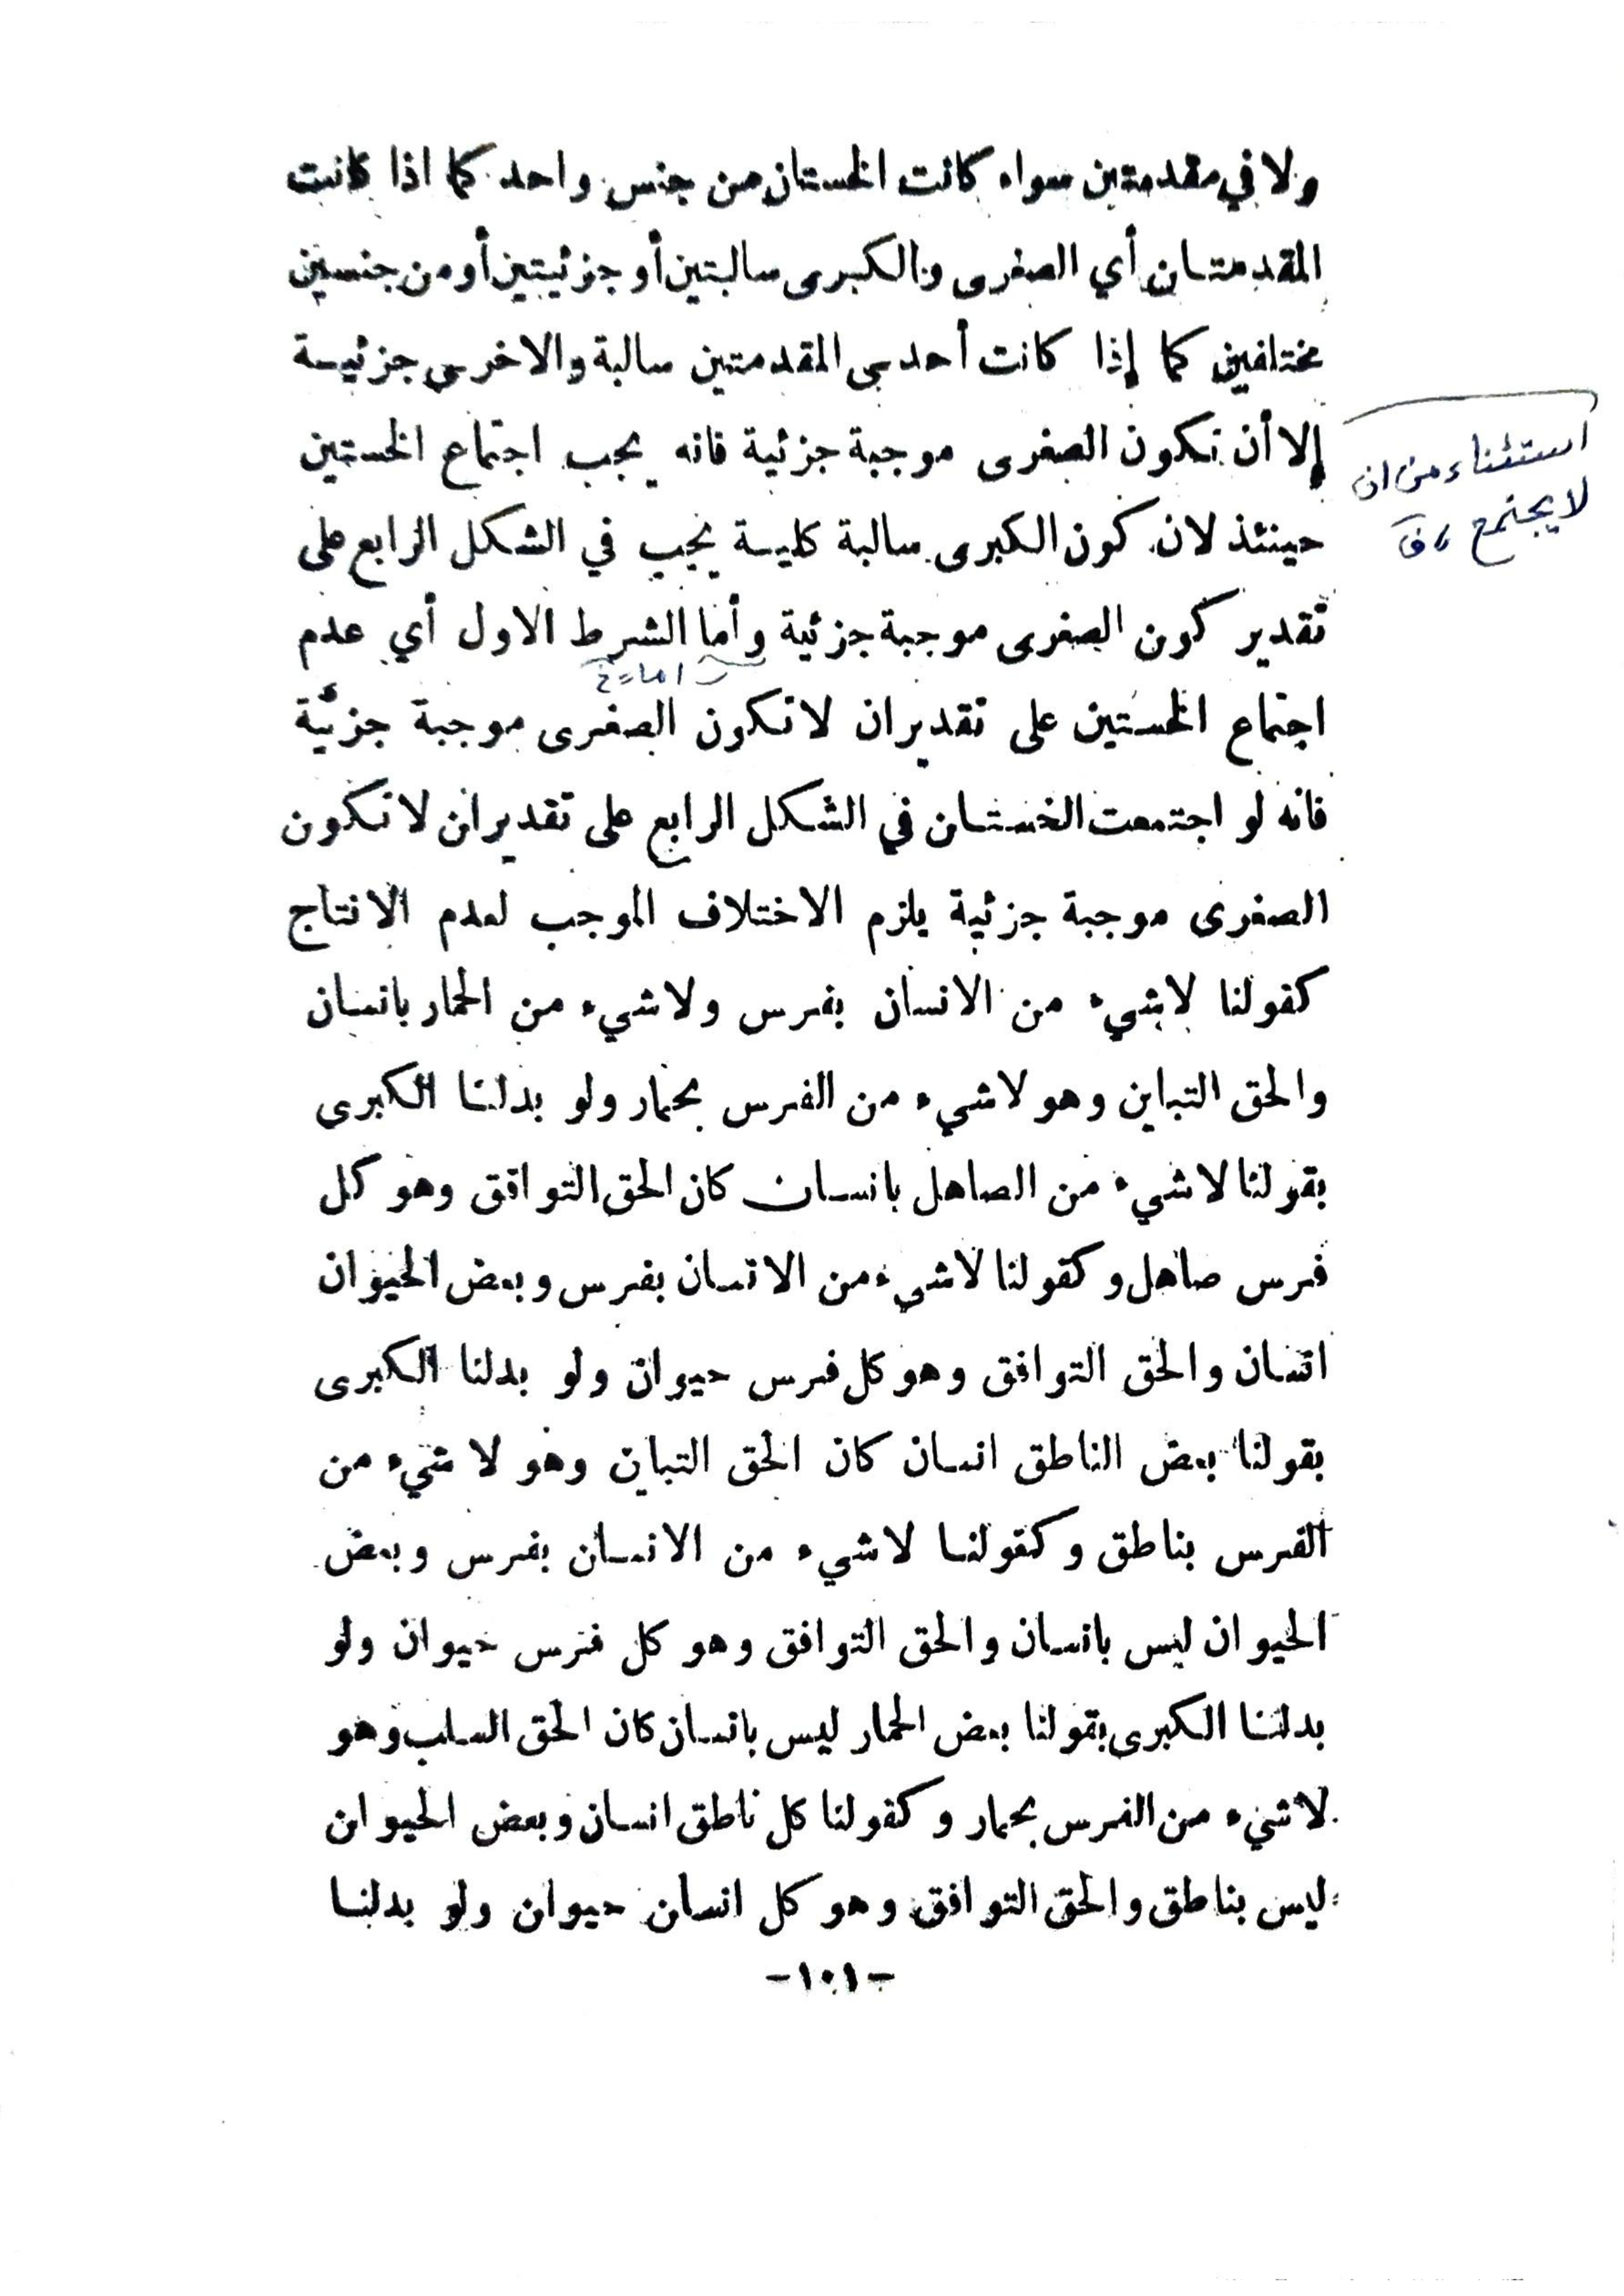 ولا في مقدمتين سواء كانت الخستان من جنس واحد كما اذا كانت
المقدمتان أي الصغرى والكبرى سالبتين أو جزئيتين أو من جنسين
مختلفين كما إذا كانت أحدى المقدمتين سالبة والاخرى جزئية
إلا أن تكون الصغرى موجبة جزئية فانه يجب اجتماع الخستين
استثناء من ان
لا يجتمع
حينئذ لان كون الكبرى سالبة كلية يجب في الشكل الرابع على
تقدير كون الصغرى موجبة جزئية وأما الشرط الاول أي عدم
اجتماع الخستين على تقدير ان لا تكون الصغرى موجبة جزئية
فانه لو اجتمعت الخستان في الشكل الرابع على تقدير ان لا تكون
الصغرى موجبة جزئية يلزم الاختلاف الموجب لعدم الانتاج
كقولنا لا شيء من الانسان بفرس ولا شيء من الحمار بانسان
والحق التباين وهو لا شيء من الفرس بحمار ولو بدلنا الكبرى
بقولنا لا شيء من الصاهل بانسان كان الحق التوافق وهو كل
فرس صاهل وكقولنا لا شيء من الانسان بفرس وبعض الحيوان
انسان والحق التوافق وهو كل فرس حيوان ولو بدلنا الكبرى
بقولنا بعض الناطق انسان كان الحق التباين وهو لا شيء من
الفرس بناطق وكقولنا لا شيء من الانسان بفرس وبعض
الحيوان ليس بانسان والحق التوافق وهو كل فرس حيوان ولو
بدلنا الكبرى بقولنا بعض الحمار ليس بانسان كان الحق السلب وهو
لا شيء من الفرس بحمار وكقولنا كل ناطق انسان وبعض الحيوان
ليس بناطق والحق التوافق وهو كل انسان حيوان ولو بدلنا
-١٠١-